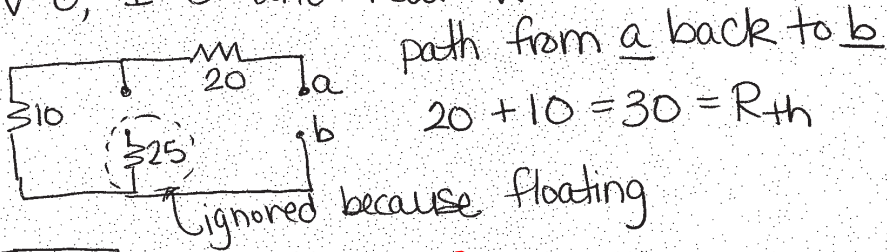 path from a back to b
20
a
10
20 + 10 = 30 = Rth
b
25
ignored because floating